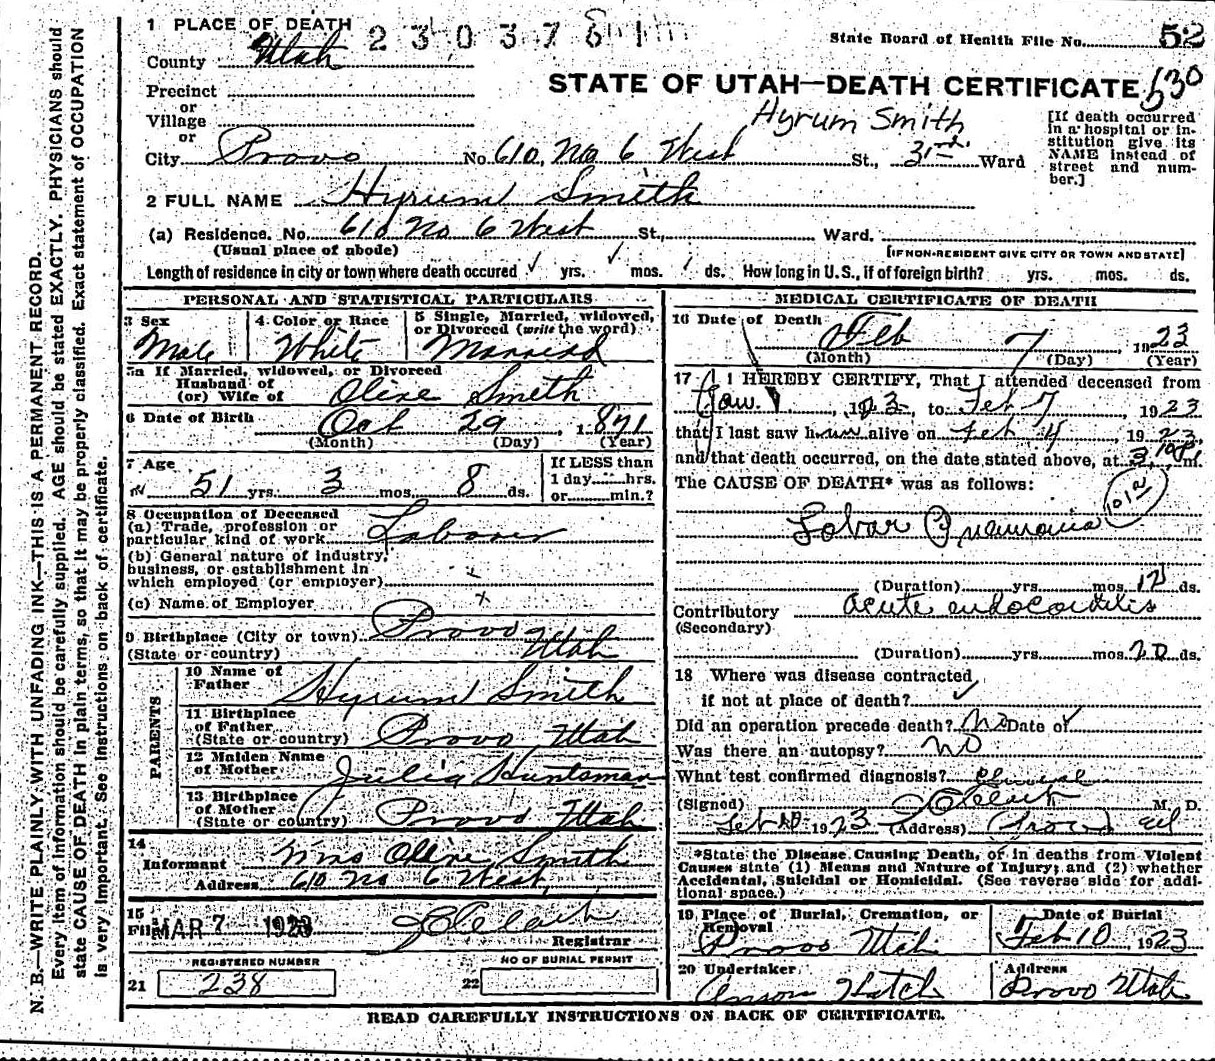 1 PLACE OF DEATH
2303761
State Board of Health File No. 52
County Utah
STATE OF UTAH—DEATH CERTIFICATE 530
Precinct
or
Village
or
Hyrum Smith
[If death occurred in a hospital or institution give its NAME instead of street and number.]
City Provo No. 610, No 6 West St., 3rd Ward
2 FULL NAME Hyrum Smith
(a) Residence. No. 610 No 6 West St., Ward.
(Usual place of abode) [IF NON-RESIDENT GIVE CITY OR TOWN AND STATE]
Length of residence in city or town where death occured yrs. mos. ds. How long in U.S., if of foreign birth? yrs. mos. ds.
PERSONAL AND STATISTICAL PARTICULARS
3 Sex Male
4 Color or Race White
5 Single, Married, widowed, or Divorced (write the word) Married
5a If Married, widowed, or Divorced
Husband of
(or) Wife of Olive Smith
6 Date of Birth Oct 29, 1871
(Month) (Day) (Year)
7 Age 51 yrs. 3 mos. 8 ds.
If LESS than
1 day hrs.
or min.?
8 Occupation of Deceased
(a) Trade, profession or
particular kind of work Laborer
(b) General nature of industry,
business, or establishment in
which employed (or employer)
(c) Name of Employer
9 Birthplace (City or town) Provo
(State or country) Utah
PARENTS
10 Name of Father Hyrum Smith
11 Birthplace of Father
(State or country) Provo Utah
12 Maiden Name of Mother Julia Huntsman
13 Birthplace of Mother
(State or country) Provo Utah
14
Informant Mrs Olive Smith
Address 610 No 6 West
15
Filed MAR 7 1923
Registrar
REGISTERED NUMBER
21 238
NO OF BURIAL PERMIT
22
MEDICAL CERTIFICATE OF DEATH
16 Date of Death Feb 7, 1923
(Month) (Day) (Year)
17 I HEREBY CERTIFY, That I attended deceased from
Jan. , 1923, to Feb 7, 1923
that I last saw him alive on Feb 4, 1923,
and that death occurred, on the date stated above, at 3, m.
The CAUSE OF DEATH* was as follows:
Lobar Pneumonia 101a
(Duration) yrs. mos. 12 ds.
Contributory Acute endocarditis
(Secondary)
(Duration) yrs. mos. 20 ds.
18 Where was disease contracted,
if not at place of death?
Did an operation precede death? No Date of
Was there an autopsy? No
What test confirmed diagnosis? Clinical
(Signed) M. D.
1923 (Address) Provo
*State the Disease Causing Death, or in deaths from Violent
Causes state (1) Means and Nature of Injury; and (2) whether
Accidental, Suicidal or Homicidal. (See reverse side for additional space.)
19 Place of Burial, Cremation, or Removal
Provo Utah
Date of Burial
Feb 10, 1923
20 Undertaker
Anson Hatch
Address
Provo Utah
READ CAREFULLY INSTRUCTIONS ON BACK OF CERTIFICATE.
N. B.—WRITE PLAINLY WITH UNFADING INK—THIS IS A PERMANENT RECORD.
Every item of information should be carefully supplied. AGE should be stated EXACTLY. PHYSICIANS should
state CAUSE OF DEATH in plain terms, so that it may be properly classified. Exact statement of OCCUPATION
is very important. See instructions on back of certificate.